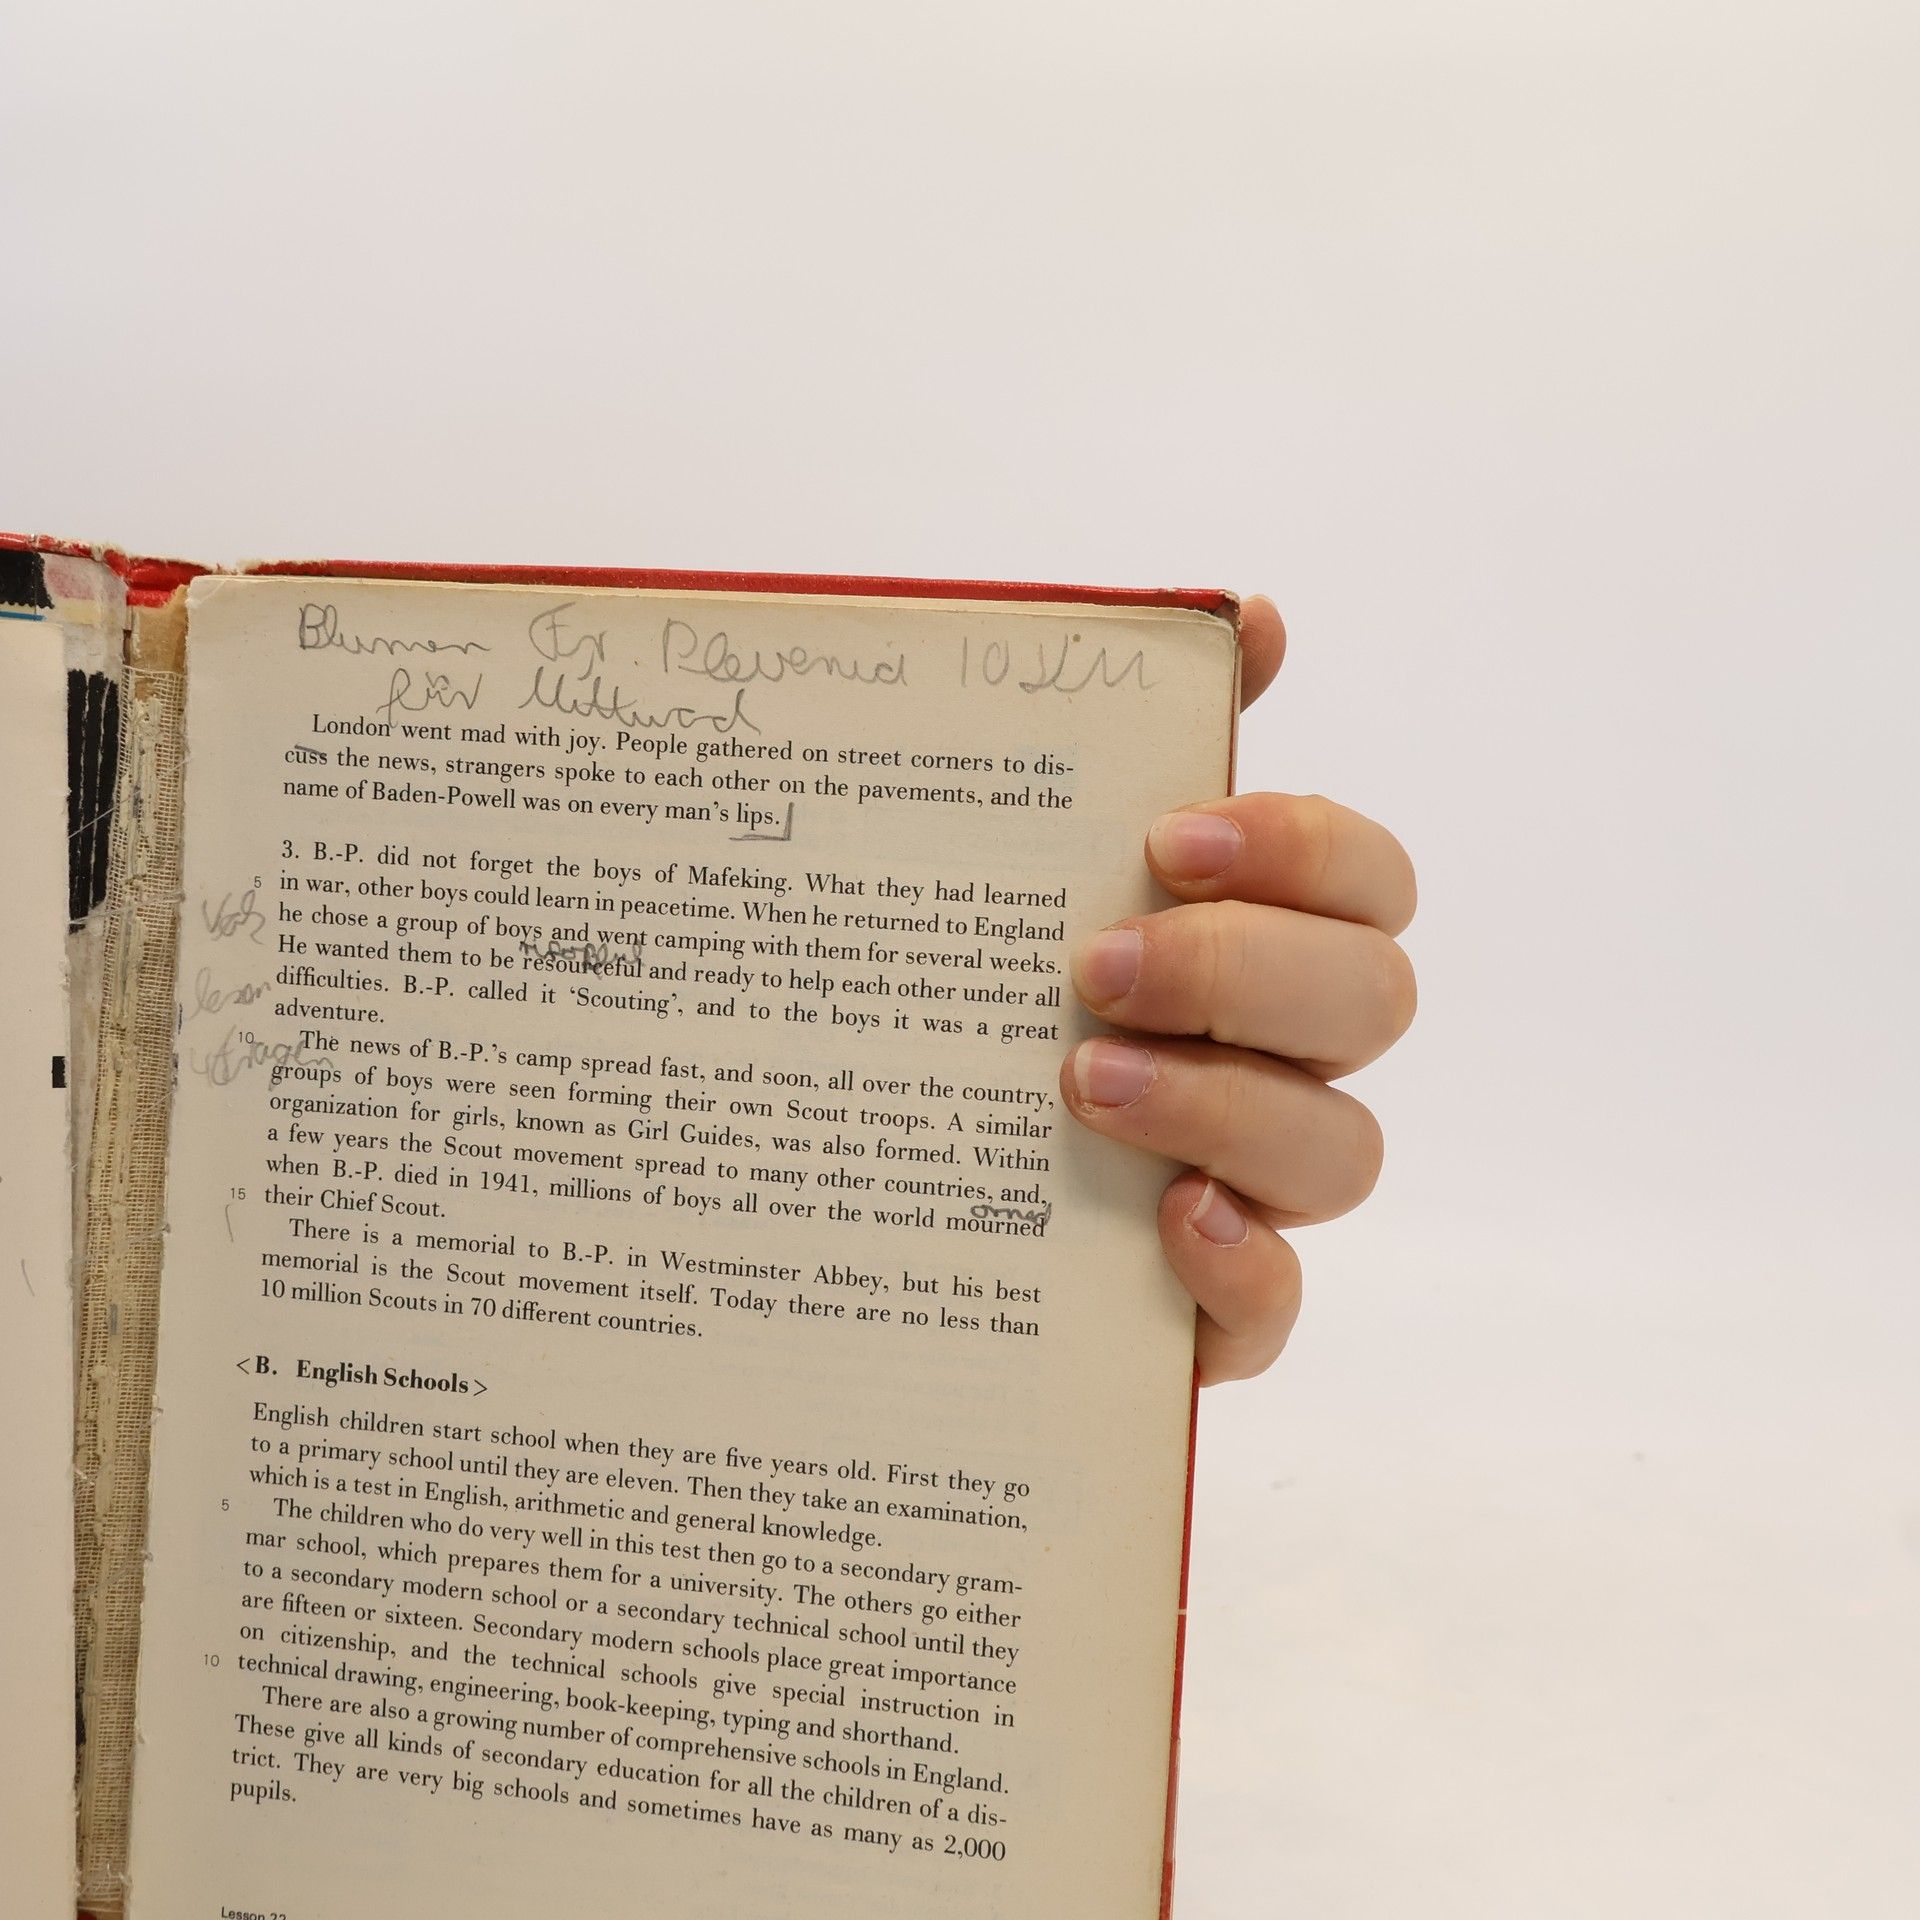 Blumen Fr. 10 DM
für Mittwoch
London went mad with joy. People gathered on street corners to dis-
cuss the news, strangers spoke to each other on the pavements, and the
name of Baden-Powell was on every man's lips.
3. B.-P. did not forget the boys of Mafeking. What they had learned
5 in war, other boys could learn in peacetime. When he returned to England
he chose a group of boys and went camping with them for several weeks.
He wanted them to be resourceful and ready to help each other under all
lesen
difficulties. B.-P. called it ‘Scouting’, and to the boys it was a great
adventure.
Fragen
10 The news of B.-P.'s camp spread fast, and soon, all over the country,
groups of boys were seen forming their own Scout troops. A similar
organization for girls, known as Girl Guides, was also formed. Within
a few years the Scout movement spread to many other countries, and,
when B.-P. died in 1941, millions of boys all over the world mourned
15 their Chief Scout.
There is a memorial to B.-P. in Westminster Abbey, but his best
memorial is the Scout movement itself. Today there are no less than
10 million Scouts in 70 different countries.
<B. English Schools>
English children start school when they are five years old. First they go
to a primary school until they are eleven. Then they take an examination,
which is a test in English, arithmetic and general knowledge.
5 The children who do very well in this test then go to a secondary gram-
mar school, which prepares them for a university. The others go either
to a secondary modern school or a secondary technical school until they
are fifteen or sixteen. Secondary modern schools place great importance
on citizenship, and the technical schools give special instruction in
10 technical drawing, engineering, book-keeping, typing and shorthand.
There are also a growing number of comprehensive schools in England.
These give all kinds of secondary education for all the children of a dis-
trict. They are very big schools and sometimes have as many as 2,000
pupils.
Lesson 22